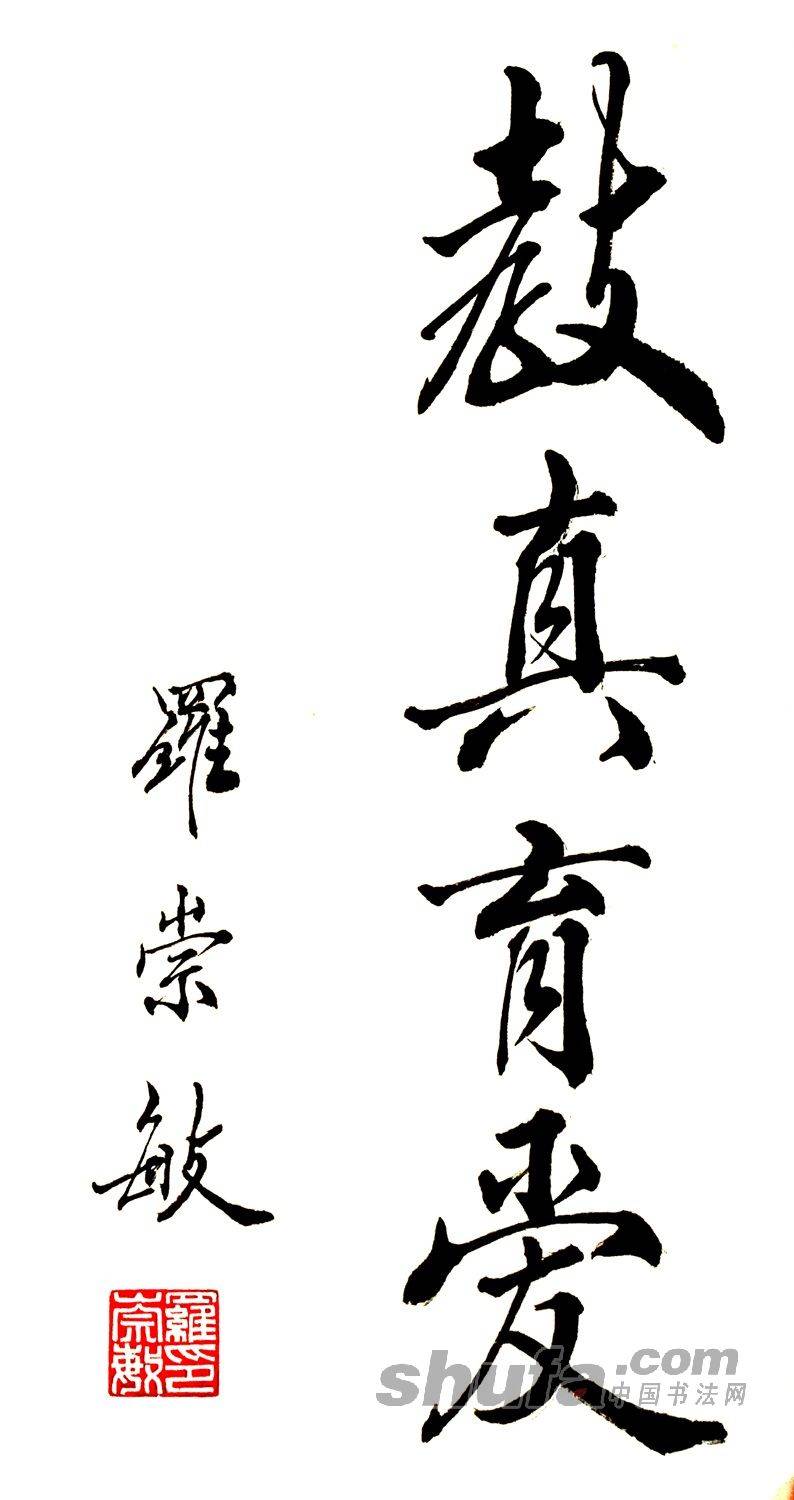 教真育爱
羅崇敏
羅崇敏印
shufa.com
中国书法网